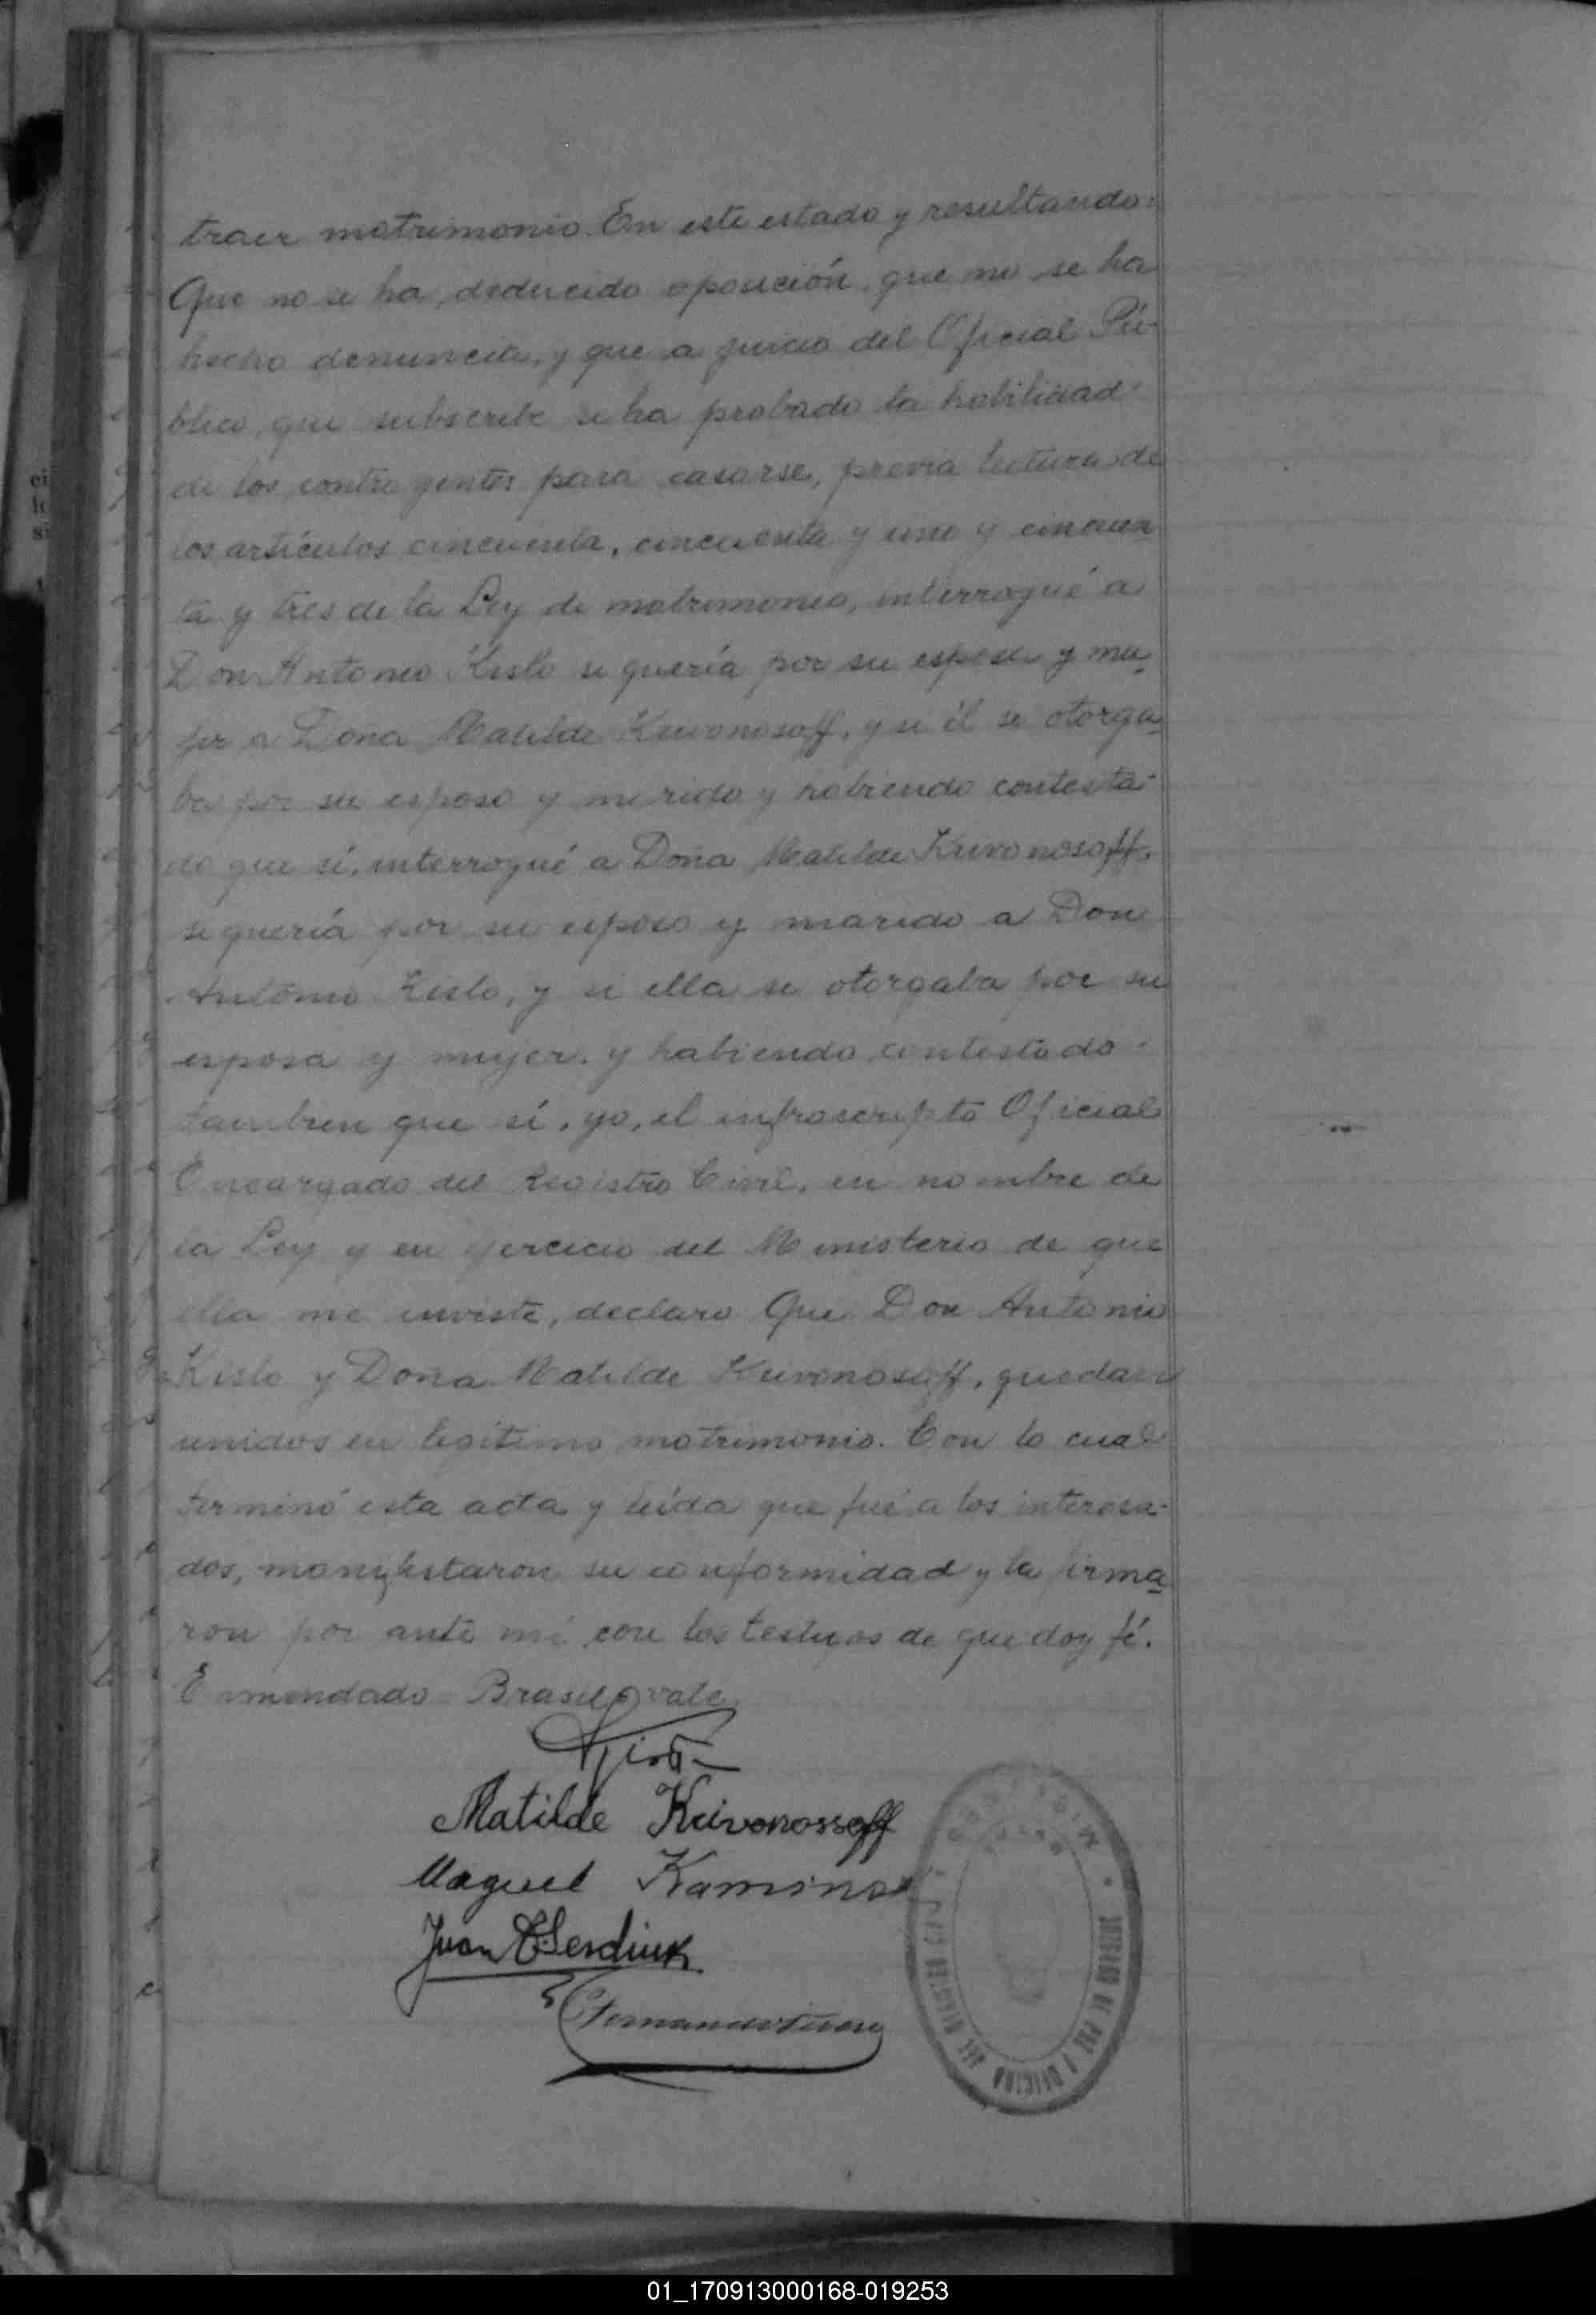 traer matrimonio. En este estado y resultando:
Que no se ha deducido oposición, que no se ha
hecho denuncia, y que a juicio del Oficial Pú-
blico, que subscribe se ha probado la habilidad
de los contrayentes para casarse, previa lectura de
los artículos cincuenta, cincuenta y uno y cincuen
ta y tres de la Ley de matrimonio, interrogué a
Don Antonio Kislo si quería por su esposa y mu
jer a Doña Matilde Krivonosoff, y si él se otorga
ba por su esposo y marido y habiendo contesta-
do que sí, interrogué a Doña Matilde Krivonosoff,
si quería por su esposo y marido a Don
Antonio Kislo, y si ella se otorgaba por su
esposa y mujer, y habiendo contestado
tambien que sí, yo, el infrascripto Oficial
Encargado del Registro Civil, en nombre de
la Ley y en ejercicio del Ministerio de que
ella me inviste, declaro Que Don Antonio
Kislo y Doña Matilde Krivonosoff, quedan
unidos en legítimo matrimonio. Con lo cual
terminó esta acta y leída que fué a los interesa-
dos, manifestaron su conformidad y la firma
ron por ante mí con los testigos de que doy fé.
Enmendado Brasil vale
Matilde Krivonossoff
Juan Serdiuk
JUZGADO DE PAZ Y OFICINA DEL REGISTRO CIVIL
01_170913000168-019253